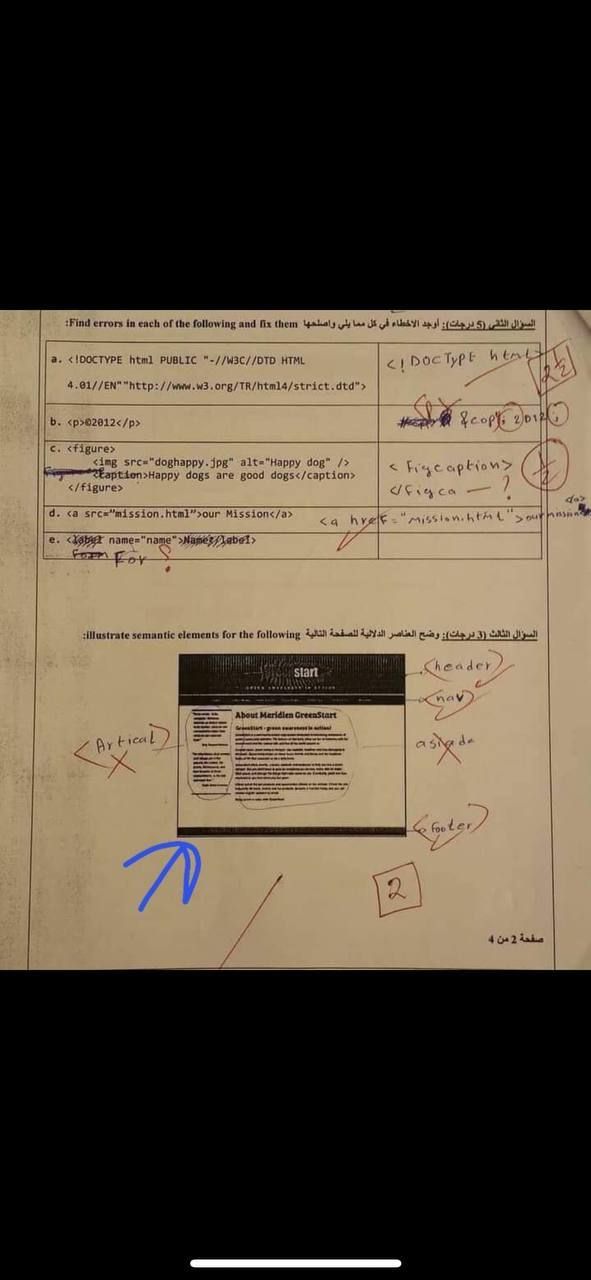 السؤال الثاني (5 درجات): أوجد الاخطاء في كل مما يلي واصلحها Find errors in each of the following and fix them:
a. <!DOCTYPE html PUBLIC "-//W3C//DTD HTML
4.01//EN""http://www.w3.org/TR/html4/strict.dtd">
<!DOCType html>
2 1/2
b. <p>©2012</p>
&copy; 2012;
c. <figure>
<img src="doghappy.jpg" alt="Happy dog" />
<caption>Happy dogs are good dogs</caption>
</figure>
<Figcaption>
</figca — ?
1/2
d. <a src="mission.html">our Mission</a>
<a href="mission.html">our mission</a>
e. <label name="name">Name</label>
For ?
السؤال الثالث (3 درجات): وضح العناصر الدلالية للصفحة التالية illustrate semantic elements for the following:
start
GREEN AWARENESS IN ACTION
<header>
<nav>
About Meridien GreenStart
GreenStart - green awareness in action!
<Artical>
asiade
<footer>
2
صفحة 2 من 4